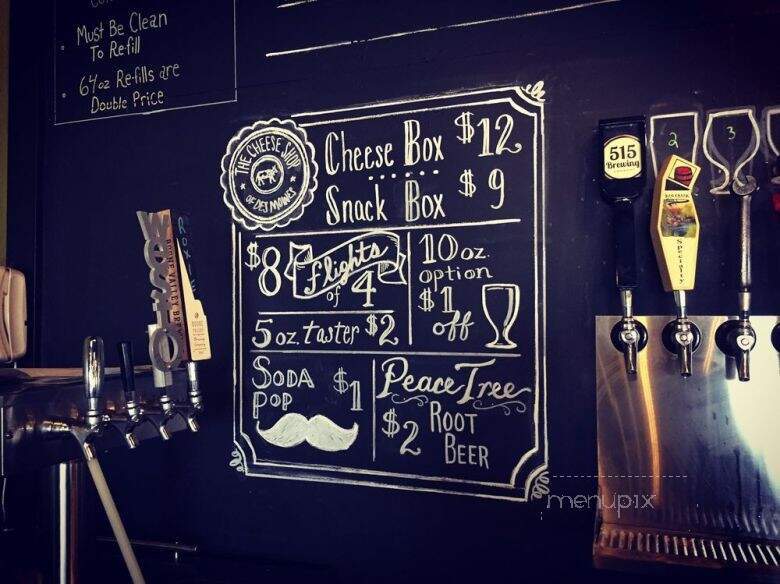 Must Be Clean
To Refill
64oz Re-fills are
Double Price
THE CHEESE SHOP
OF DES MOINES
Cheese Box $12
Snack Box $9
$8 flights
of 4
10 oz.
option
$1
off
5 oz. taster $2
SODA
POP $1
Peace Tree
$2 ROOT
BEER
515
Brewing
2
3
Specialty
ROXIE
menupix